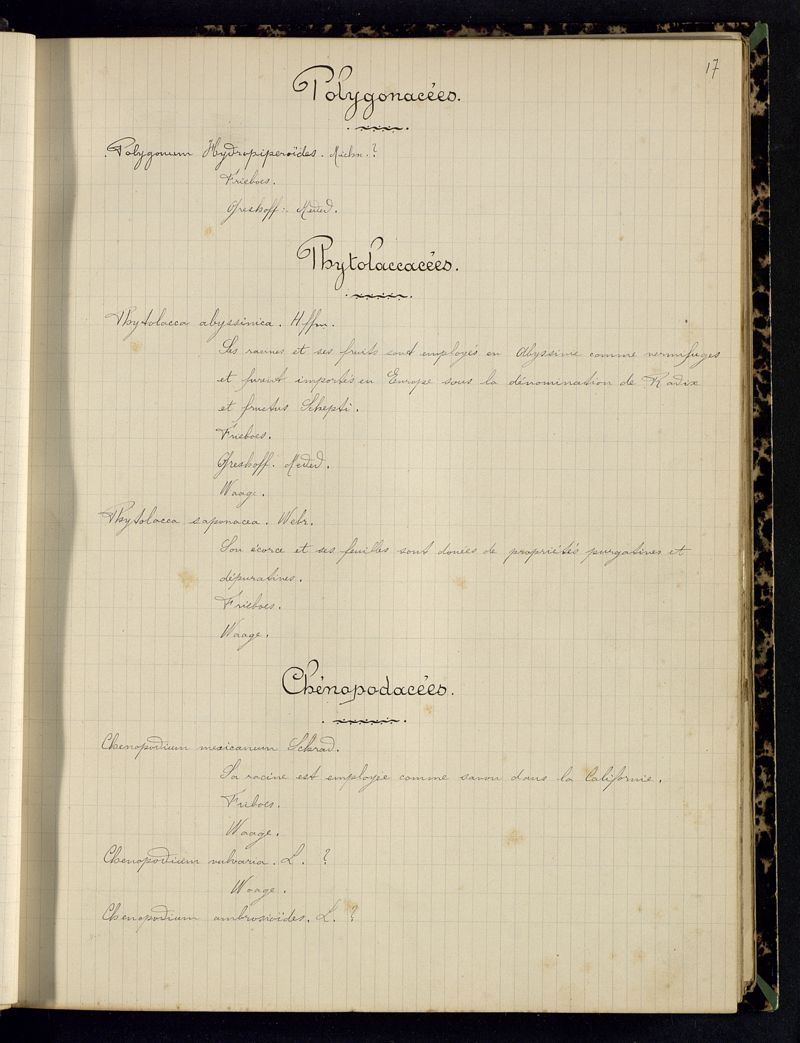 17
Polygonacées.
Polygonum Hydropiperoïdes. Michx. ?
Frieboes.
Greshoff: Meded.
Phytolaccacées.
Phytolacca abyssinica. Hffm.
Ses racines et ses fruits sont employés en Abyssinie comme vermifuges
et furent importés en Europe sous la dénomination de Radix
et fructus Schepti.
Frieboes.
Greshoff. Meded.
Waage.
Phytolacca saponacea. Welr.
Son écorce et ses feuilles sont douées de propriétés purgatives et
dépuratives.
Frieboes.
Waage.
Chénopodacées.
Chenopodium mexicanum Schrad.
Sa racine est employée comme savon dans la Californie.
Friboes.
Waage.
Chenopodium vulvaria. L. ?
Waage.
Chenopodium ambrosioïdes. L. ?